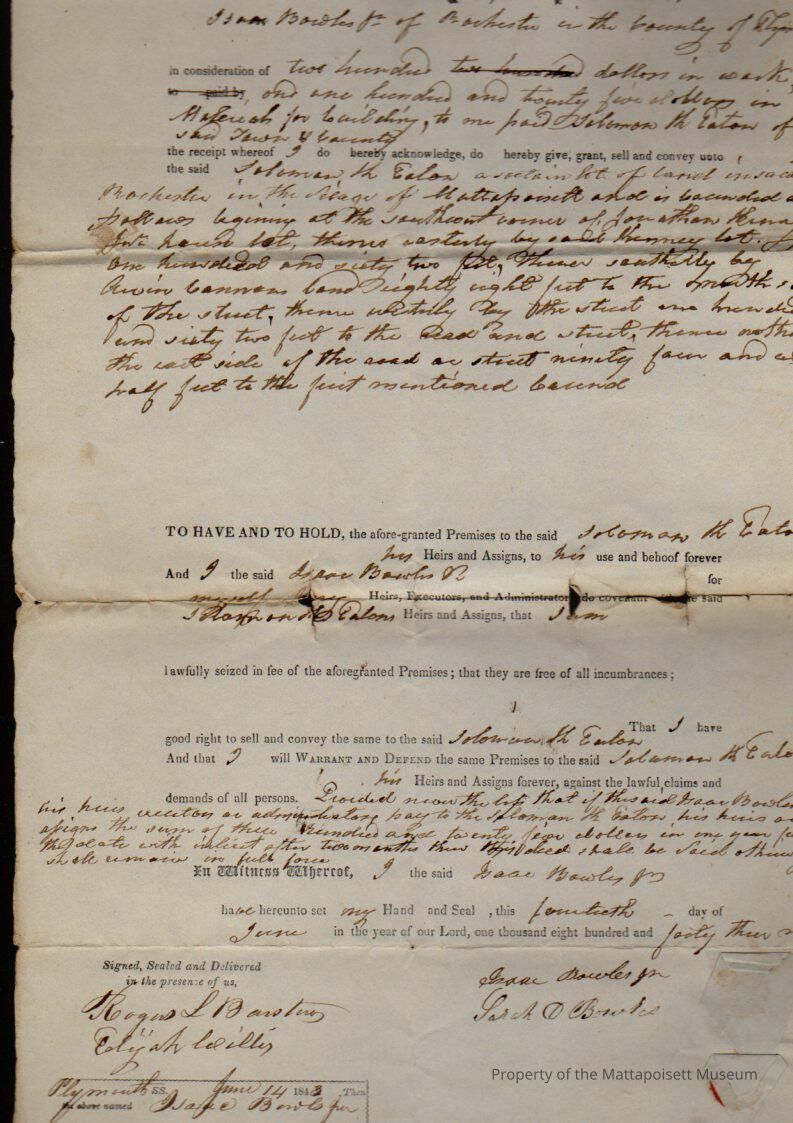 Isaac Bowles Jr of Rochester in the County of Plym
in consideration of two hundred two hundred dollars in work,
to paid by, and one hundred and twenty five dollars in
Materials for building, to me paid Solomon K Eaton of
said Town & County
the receipt whereof I do hereby acknowledge, do hereby give, grant, sell and convey unto
the said Soloman K Eaton a certain lot of land in said
Rochester in the vilage of Mattapoisett and is bounded as
follows begining at the southwest corner of Jonathan Kinn
house lot, thence easterly by said Kinney lot.
one hundred and sixty two feet, thence southerly by
Cannons land eighty eight feet to the north s
of the street, thence westerly by the street one hundred
and sixty two feet to the road and street, thence north
the east side of the road or street ninety four and
half feet to the first mentioned bound
TO HAVE AND TO HOLD, the afore-granted Premises to the said Soloman K Eato
his Heirs and Assigns, to his use and behoof forever
And I the said Isaac Bowles Jr for
myself my Heirs, Executors, and Administrators do covenant with the said
Solomon K Eatons Heirs and Assigns, that I am
lawfully seized in fee of the aforegranted Premises; that they are free of all incumbrances;
That I have
good right to sell and convey the same to the said Soloman K Eaton
And that I will WARRANT AND DEFEND the same Premises to the said Soloman K Eato
his Heirs and Assigns forever, against the lawful claims and
demands of all persons. Provided nevertheless that if the said Isaac Bowles
his heirs executors or administrators pay to the Soloman K Eaton, his heirs or
assigns the sum of three hundred and twenty five dollars in one year f
the date with interest after two months then this deed shall be void otherw
shall remain in full force
In Witness Whereof, I the said Isaac Bowles Jr
have hereunto set my Hand and Seal, this fourteenth day of
June in the year of our Lord, one thousand eight hundred and forty three
Signed, Sealed and Delivered
in the presence of us,
Isaac Bowles Jr
Rogers L Barstow
Sarah D Bowles
Elijah Willis
Plymouth SS. June 14 1843 Then
the above named Isaac Bowles Jun
Property of the Mattapoisett Museum